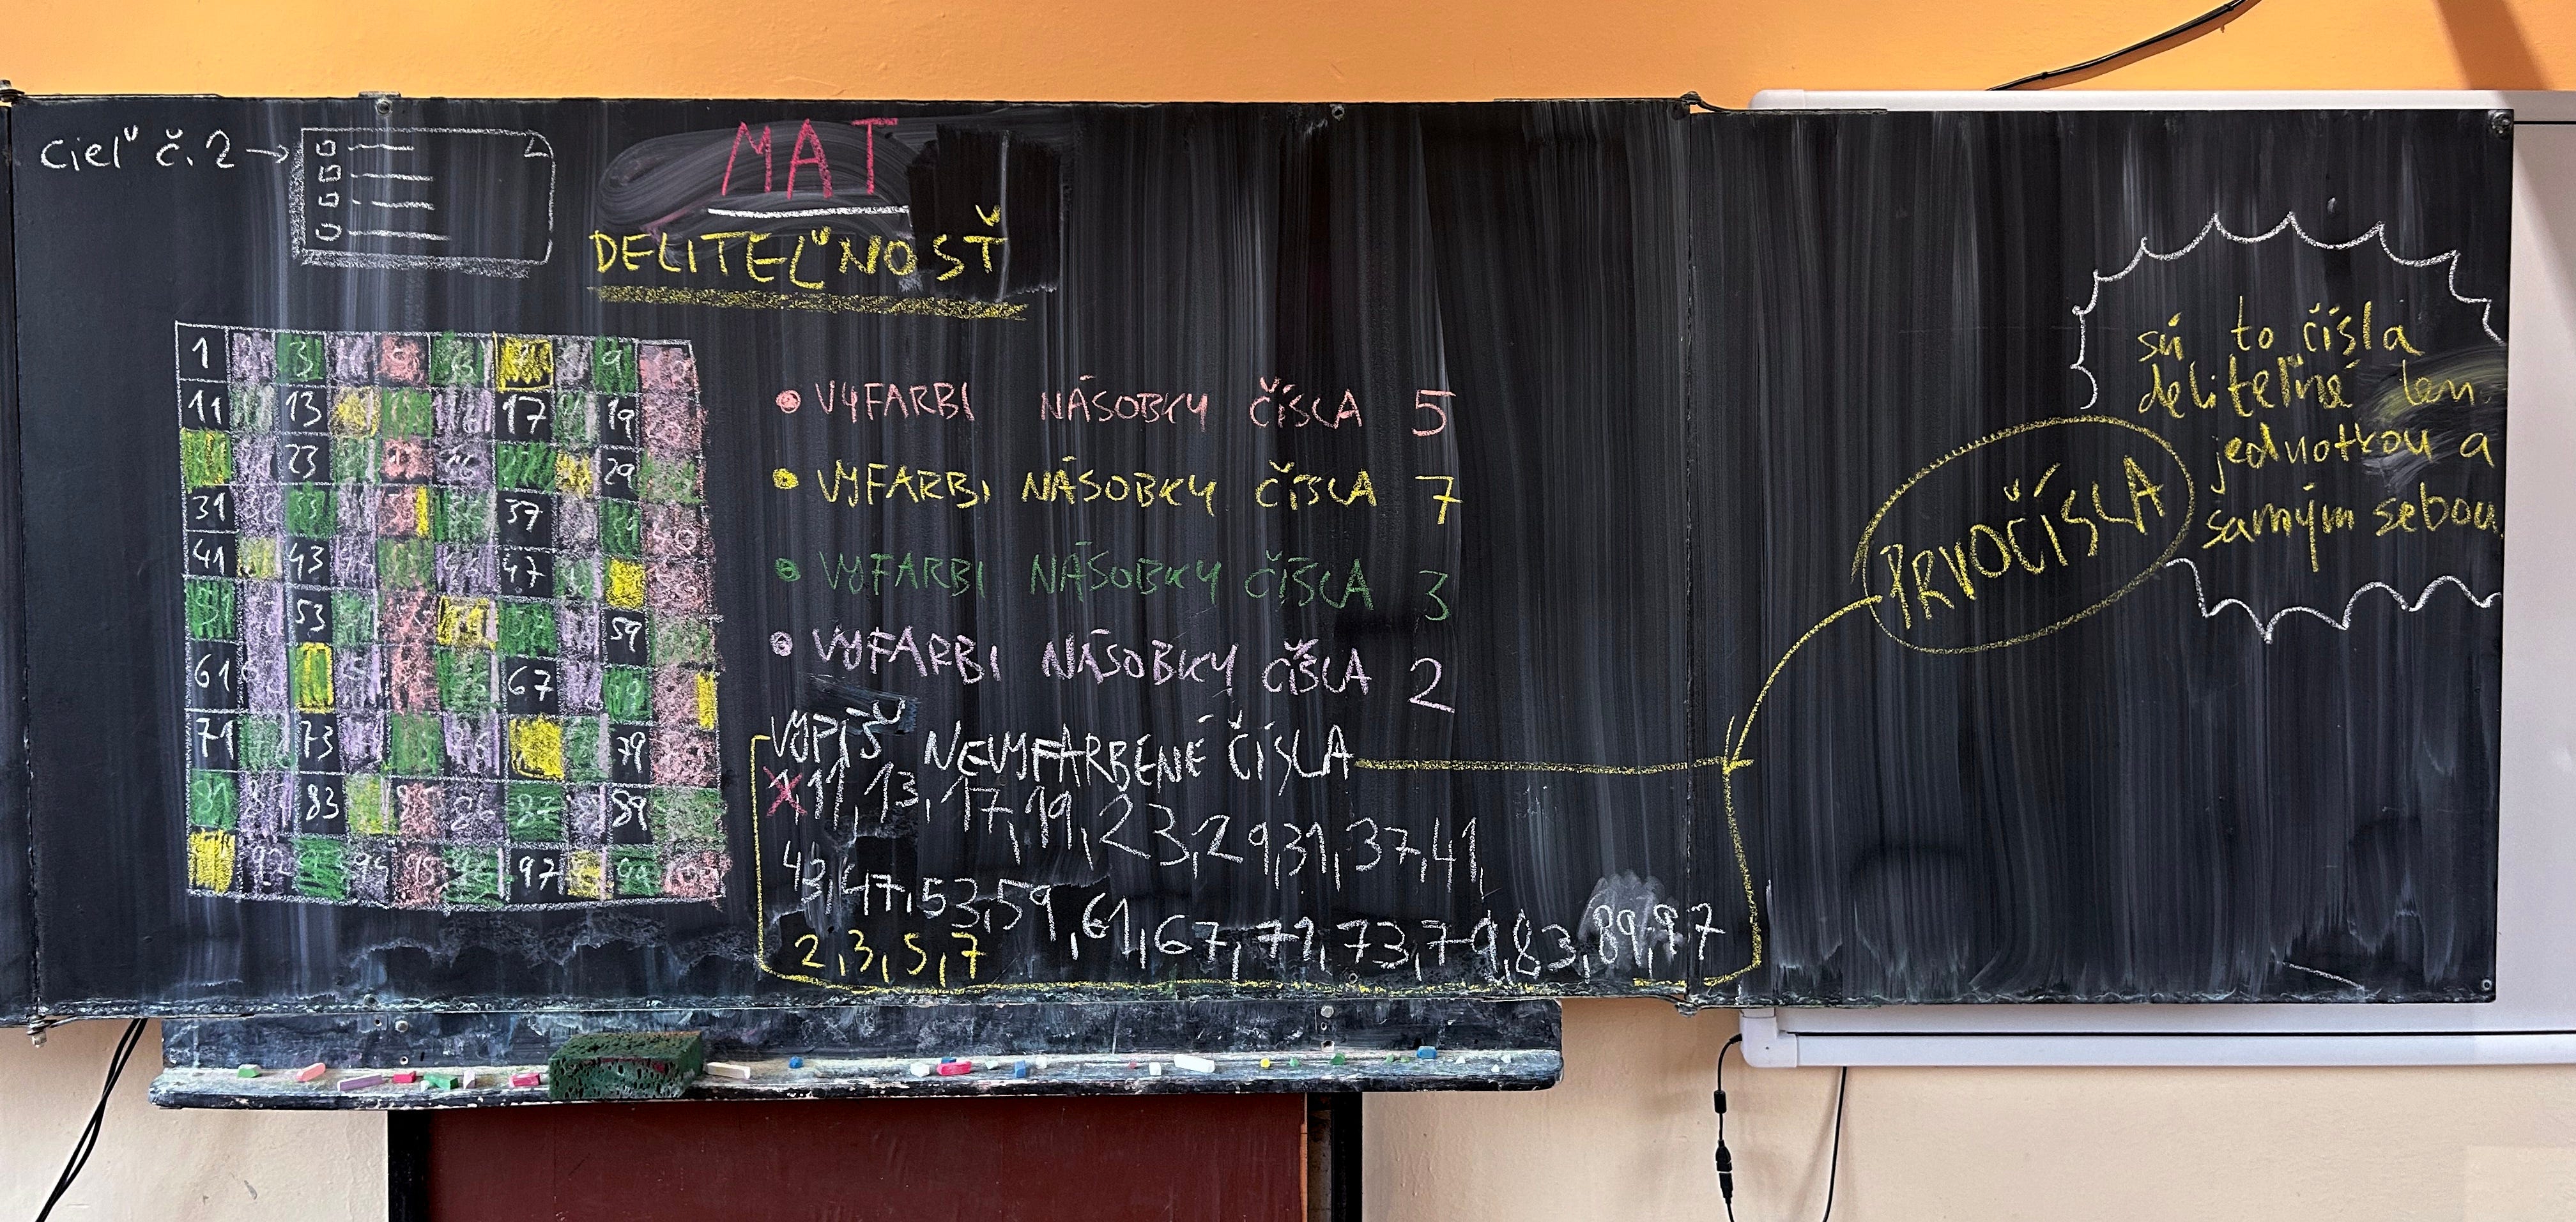 Cieľ č. 2 →
MAT
DELITEĽNOSŤ
1 2 3 5 9
11 13 17 19
23 26 27 29
31 33 37 39
41 43 44 46 47
53 59
61 67
71 73 76 79
81 82 83 85 86 87 89
92 93 94 95 96 97 99 100
• VYFARBI NÁSOBKY ČÍSLA 5
• VYFARBI NÁSOBKY ČÍSLA 7
• VYFARBI NÁSOBKY ČÍSLA 3
• VYFARBI NÁSOBKY ČÍSLA 2
VYPÍŠ NEVYFARBENÉ ČÍSLA
1, 11, 13, 17, 19, 23, 29, 31, 37, 41,
43, 47, 53, 59, 61, 67, 71, 73, 79, 83, 89, 97
2, 3, 5, 7
PRVOČÍSLA
sú to čísla
deliteľné len
jednotkou a
samým sebou